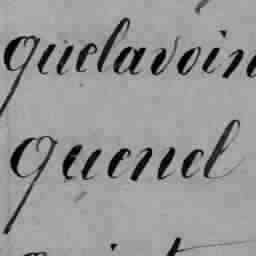 quelavoin
quenel